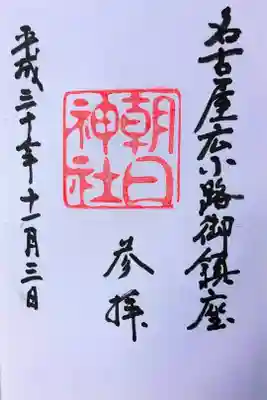 名古屋広小路御鎮座
朝日神社
参拝
平成三十年十一月三日